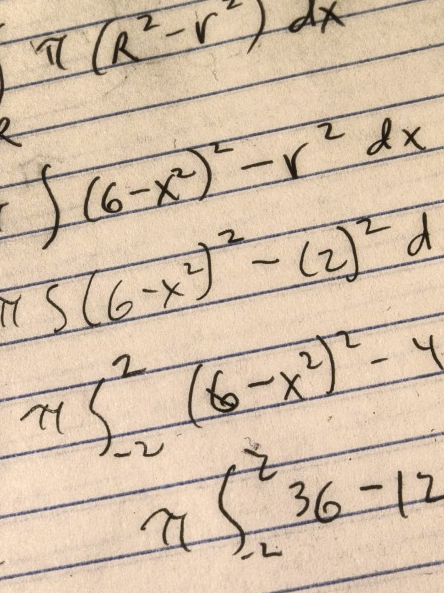 π (R² - r²) dx
∫ (6-x²)² - r² dx
π ∫ (6-x²)² - (2)² d
π ∫₋₂² (6-x²)² - 4
π ∫₋₂² 36 - 12